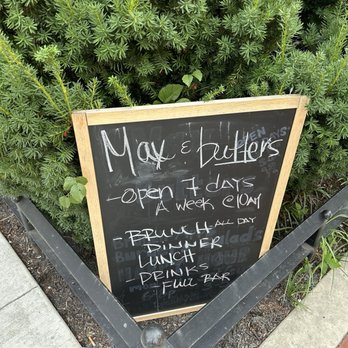 Max & butters
- Open 7 days
A week @10AM
- BRUNCH ALL DAY
DINNER
LUNCH
DRINKS
- FULL BAR